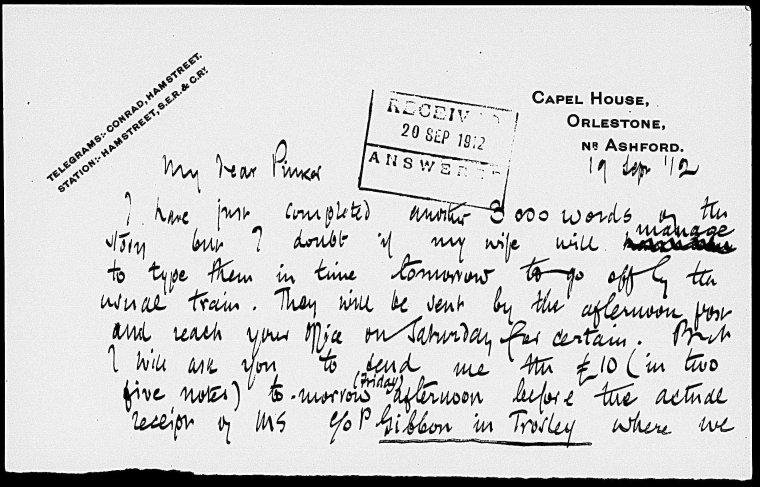 TELEGRAMS:- CONRAD, HAMSTREET.
STATION:- HAMSTREET, S.E.R. & C.RY.
RECEIVED
20 SEP 1912
ANSWERED
CAPEL HOUSE,
ORLESTONE,
NR ASHFORD.
19 Sept '12
My dear Pinker
I have just completed another 3000 words of the
story but I doubt if my wife will manage
to type them in time tomorrow to go off by the
usual train. They will be sent by the afternoon post
and reach your office on Saturday for certain. But
I will ask you to send me the £10 (in two
five notes) to-morrow (Friday) afternoon before the actual
receipt of MS c/o P Gibbon in Trosley where we